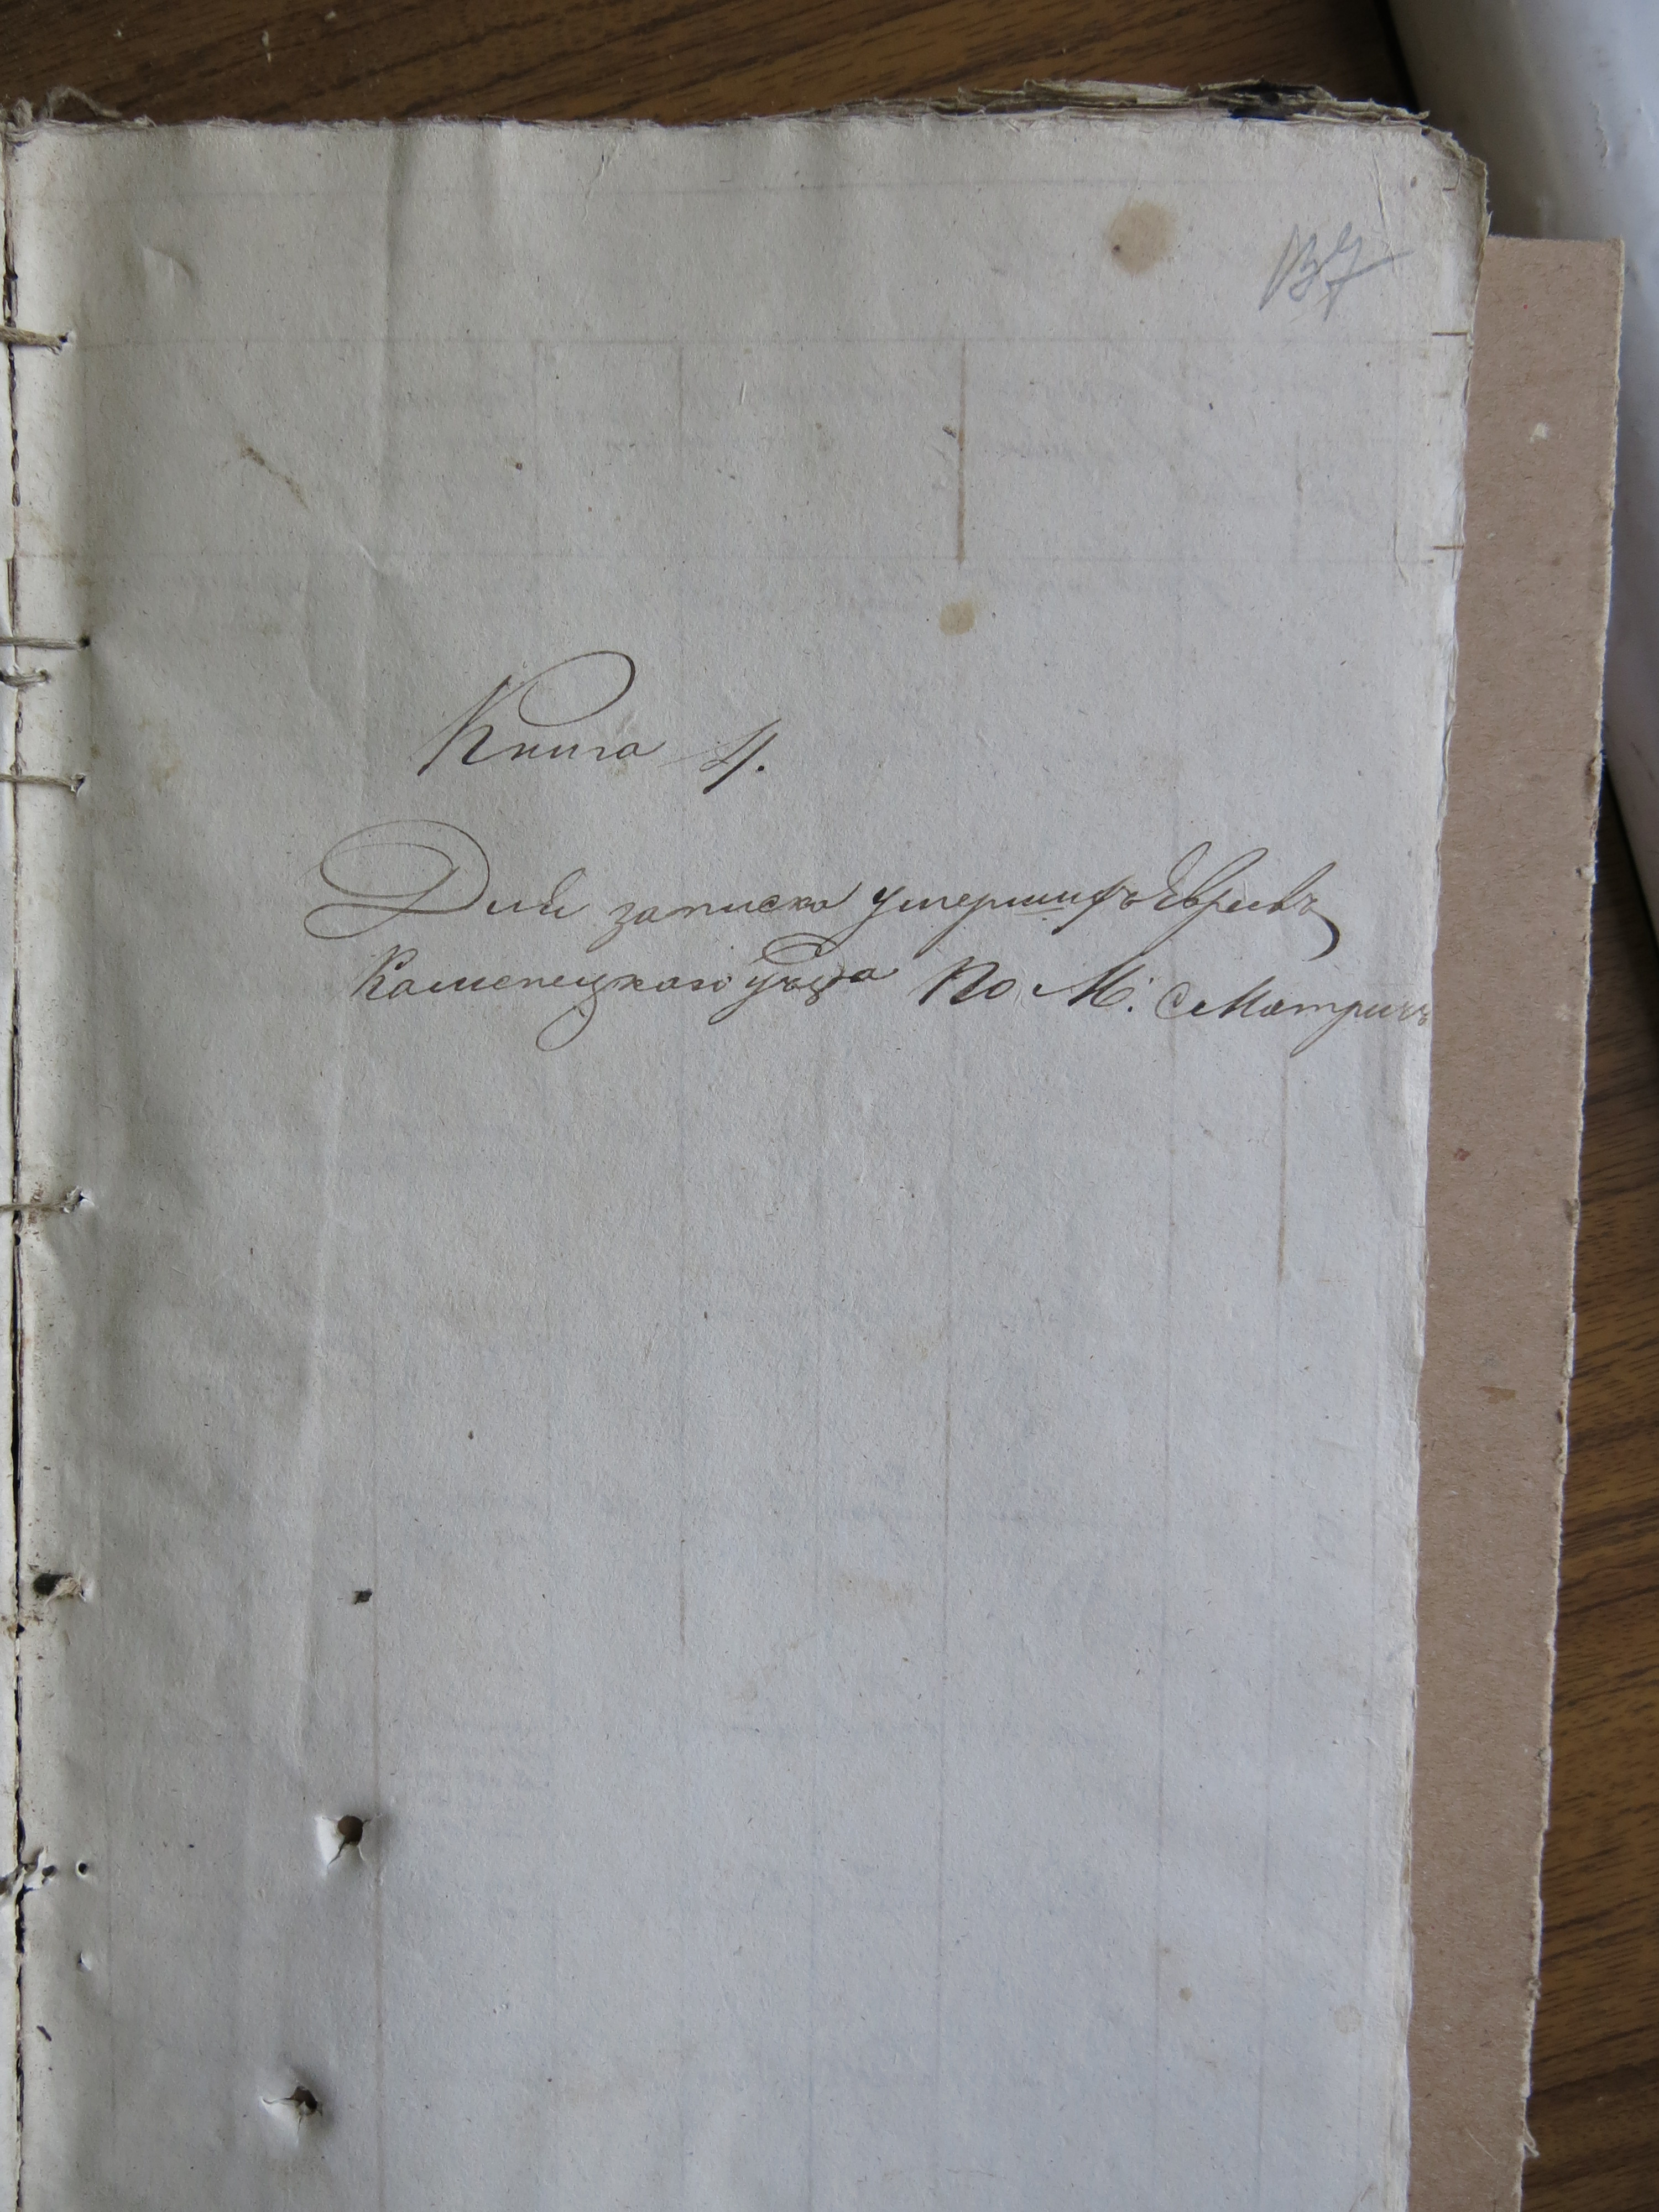 137
Книга 4.
Для записка умершихъ Евреевъ
Каменецкаго уѣзда По М. Смотричъ